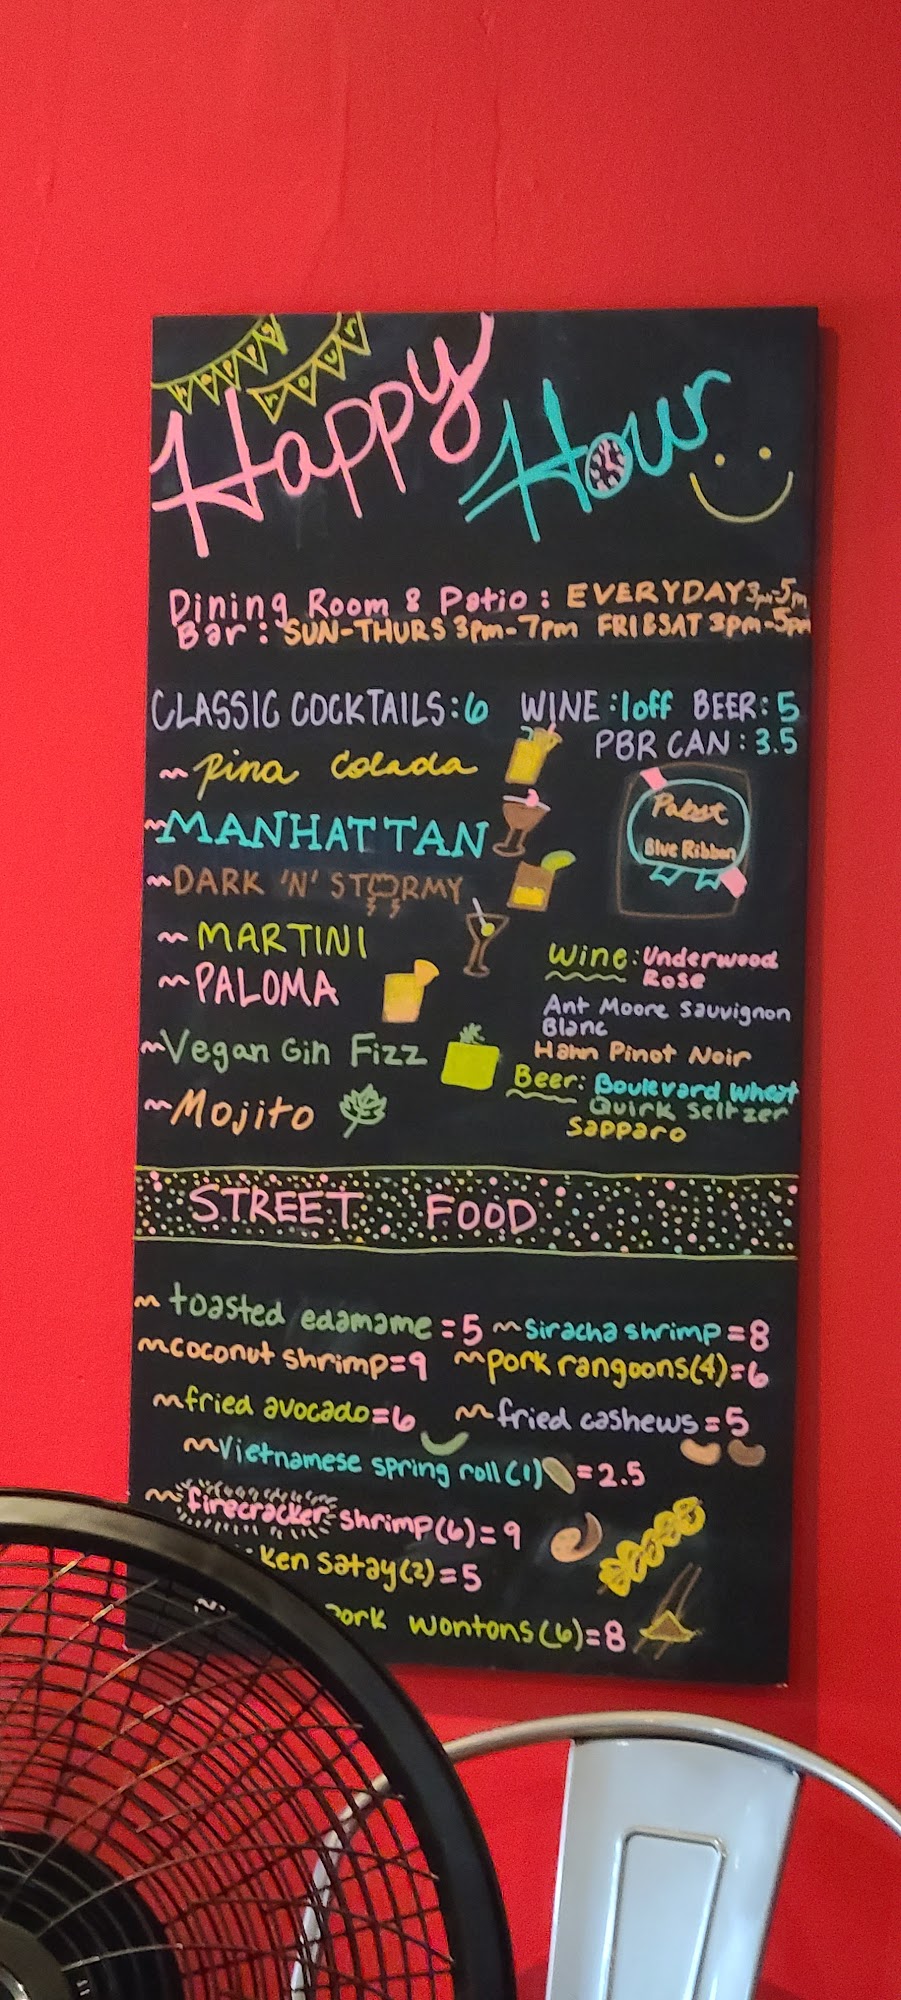 happy hour
Happy Hour
Dining Room & Patio : EVERYDAY 3pm-5pm
Bar : SUN-THURS 3pm-7pm FRI&SAT 3pm-5pm
CLASSIC COCKTAILS:6
~pina colada
~MANHATTAN
~DARK 'N' STORMY
~MARTINI
~PALOMA
~Vegan Gin Fizz
~Mojito
WINE :1off BEER:5
PBR CAN : 3.5
Pabst
Blue Ribbon
Wine: Underwood
Rose
Ant Moore Sauvignon
Blanc
Hahn Pinot Noir
Beer: Boulevard Wheat
Quirk Seltzer
Sapparo
STREET FOOD
~toasted edamame=5 ~siracha shrimp=8
~coconut shrimp=9 ~pork rangoons(4)=6
~fried avocado=6 ~fried cashews=5
~Vietnamese spring roll(1)=2.5
~firecracker shrimp(6)=9
ken satay(2)=5
pork wontons(6)=8